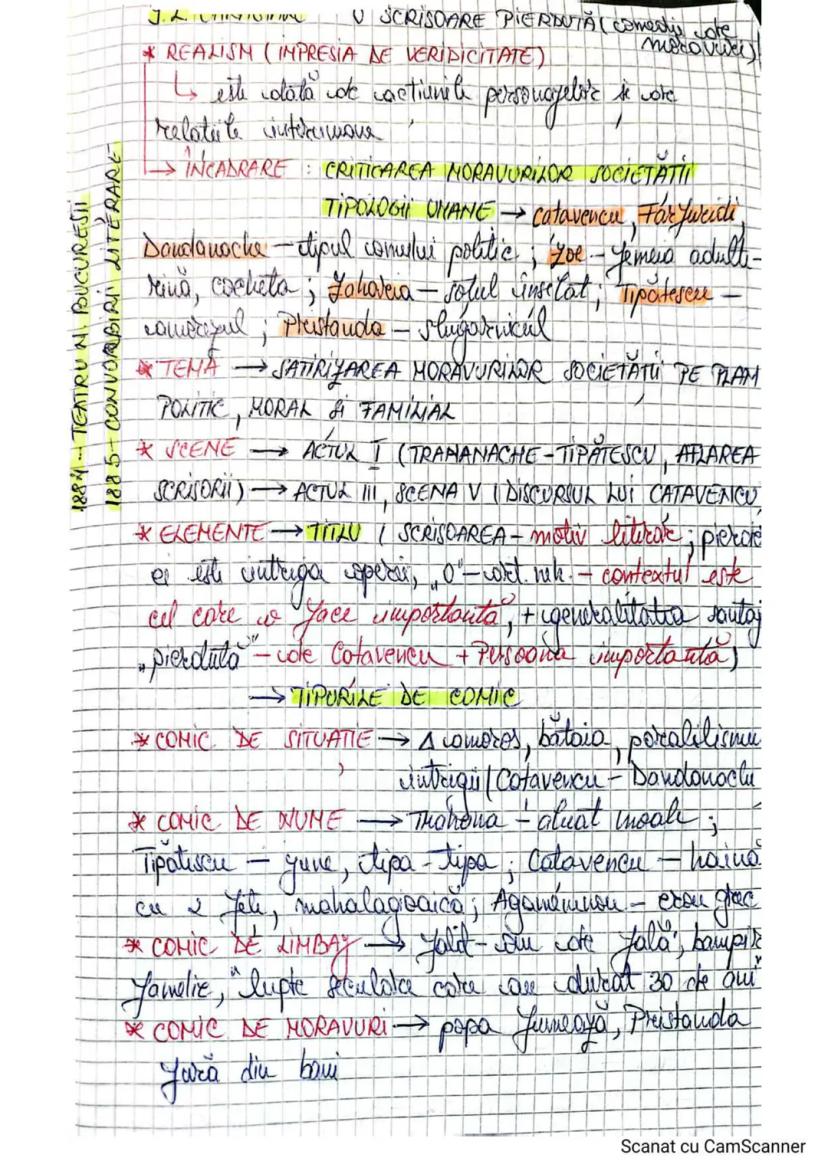 I.L. CARAGIALE O SCRISOARE PIERDUTĂ (comedie de
moravuri)
* REALISM (IMPRESIA DE VERIDICITATE)
↳ este dată de acțiunile personajelor și de
relațiile interumane
→ ÎNCADRARE : CRITICAREA MORAVURILOR SOCIETĂȚII
TIPOLOGII UMANE → Catavencu, Farfuridi,
Dandanache – tipul omului politic ; Zoe – femeia adulte-
rină, cocheta ; Zaharia – soțul înșelat ; Tipătescu –
amorezul ; Pristanda – slugarnicul
* TEMĂ → SATIRIZAREA MORAVURILOR SOCIETĂȚII PE PLAN
POLITIC, MORAL ȘI FAMILIAL
* SCENE → ACTUL I (TRAHANACHE-TIPĂTESCU, AFLAREA
SCRISORII) → ACTUL III, SCENA V (DISCURSUL LUI CATAVENCU
* ELEMENTE → TITLU ( SCRISOAREA – motiv literar ; pierde
ei este intriga operei, „O" – art. neh. – contextul este
cel care o face importantă, + generalitatea șantaj
„pierdută" – de Catavencu + Persoana importantă)
→ TIPURILE DE COMIC
* COMIC DE SITUAȚIE → Δ amoros, bătaia, paralelismu
intrigii (Catavencu – Dandanache
* COMIC DE NUME → Trahana – aluat moale ;
Tipătescu – june, tipa-tipa ; Catavencu – haină
cu 2 fețe, mahalagioaică ; Agamemnon – erou grec
* COMIC DE LIMBAJ → falit – om de fală", bampir
famelie, "lupte seculare care au durat 30 de ani"
* COMIC DE MORAVURI → popa fumează, Pristanda
fură din bani
1884 – TEATRU N. BUCUREȘTI
1885 – CONVORBIRI LITERARE
Scanat cu CamScanner